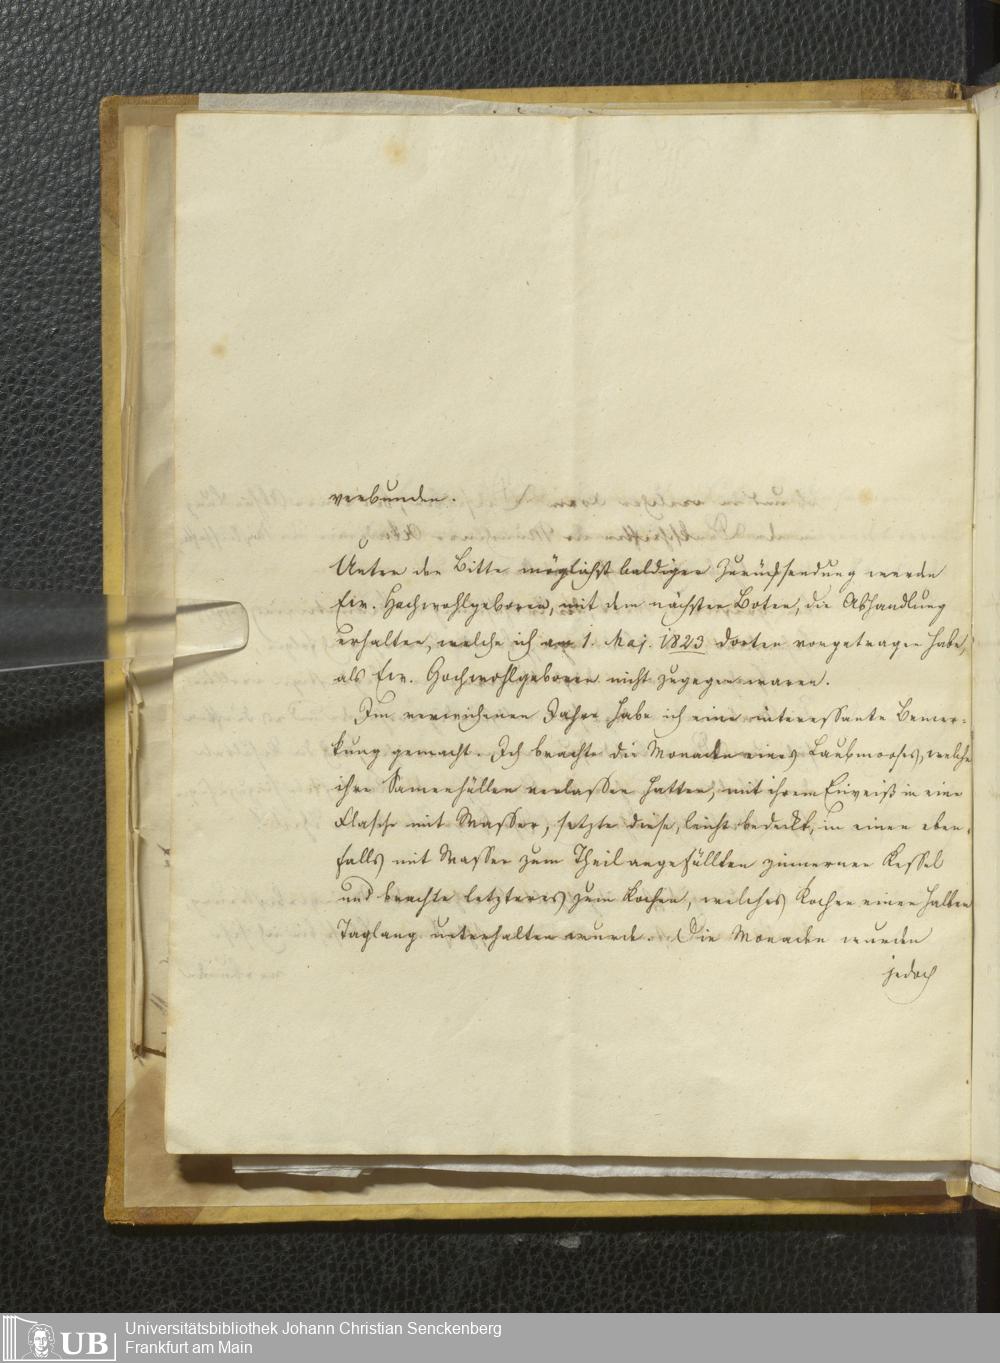 verbunden.
Unter der Bitte möglichst baldiger Zurücksendung werden
Ew. Hochwohlgeboren, mit dem nächsten Boten, die Abhandlung
erhalten, welche ich am 1. Maj. 1823 dorten vorgetragen habe,
als Ew. Hochwohlgeboren nicht zugegen waren.
Im verwichenen Jahre habe ich eine interessante Bemer-
kung gemacht. Ich brachte die Monaden eines Laubmooses, welche
ihre Samenhüllen verlassen hatten, mit ihrem Eiweiß in eine
Flasche mit Wasser, setzte diese, leicht bedeckt, in einen eben-
falls mit Wasser zum Theil angefüllten zinnernen Kessel
und brachte letzteres zum Kochen, welches Kochen einen halben
Taglang unterhalten wurde. Die Monaden wurden
jedoch
UB
Universitätsbibliothek Johann Christian Senckenberg
Frankfurt am Main